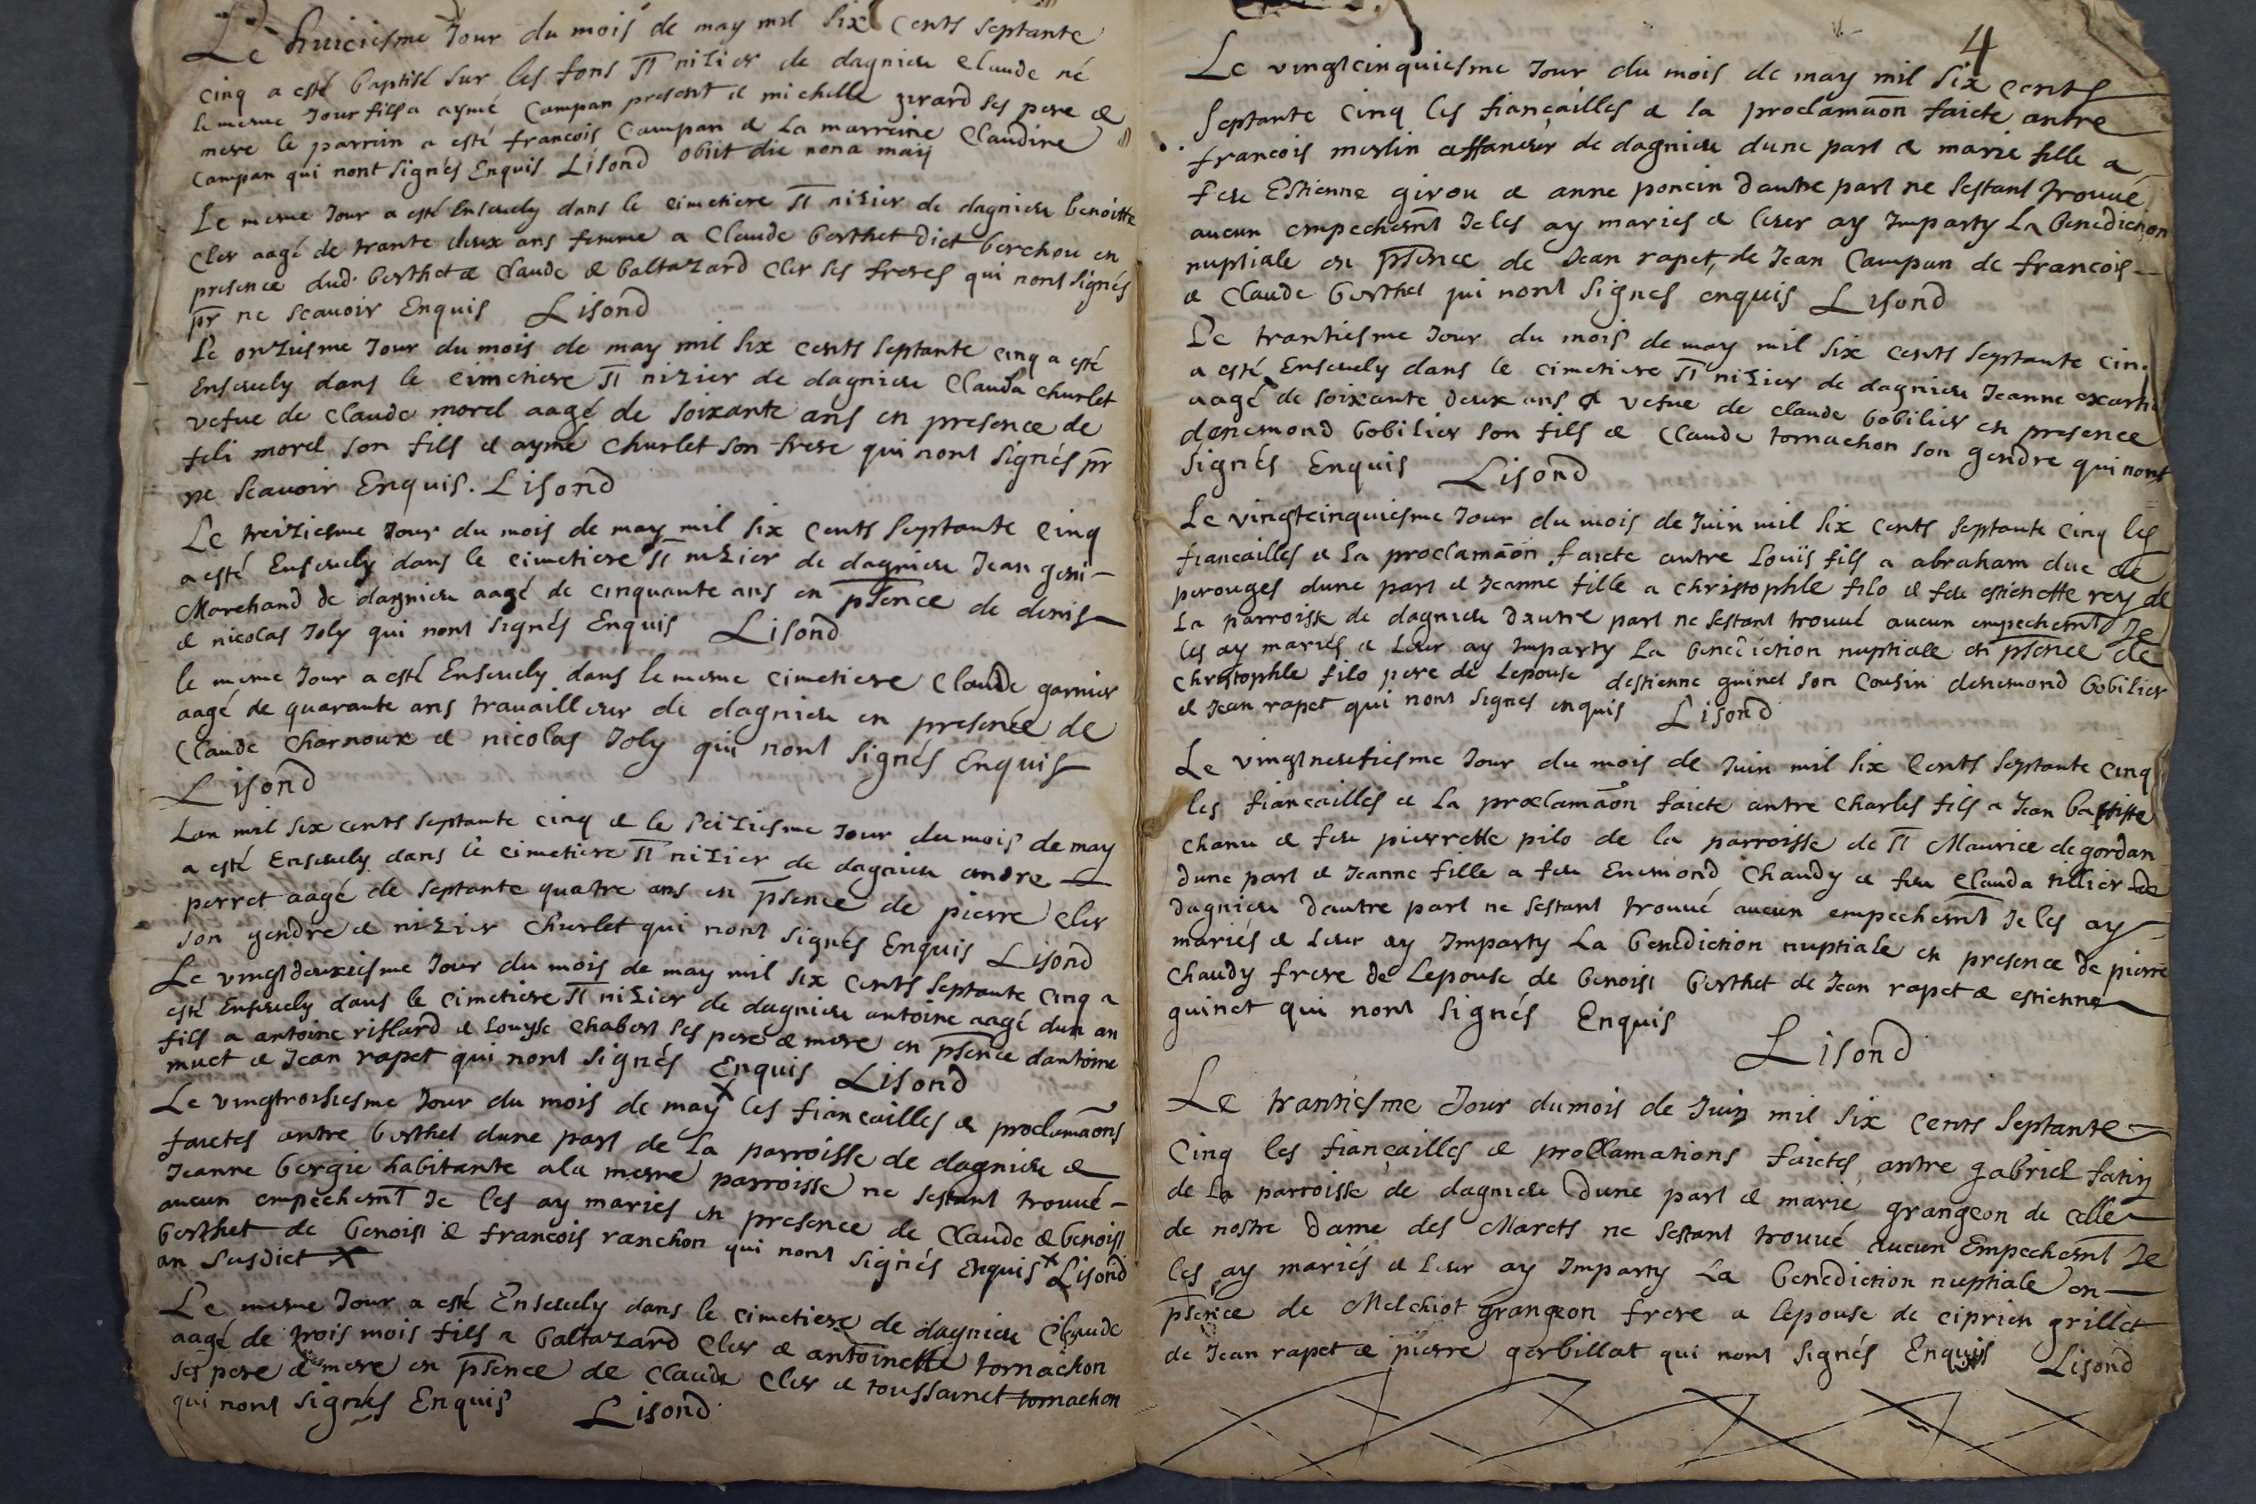 Le huiciesme Jour du mois de may mil six cents septante
cinq a esté baptisé sur les fons St nizier de dagnieu Claude né
le mesme Jour fils a aymé Campan present et michelle girard ses pere et
mere le parrain a esté francois Campan et la marraine Claudine
Campan qui nont signés Enquis Lisond obiit die nona maij
Le mesme Jour a esté Ensevely dans le cimetiere St nizier de dagnieu benoitte
Cler aagé de trante deux ans femme a Claude berthet dict berchou en
presence dud. berthet et Claude et baltazard Cler ses freres qui nont signés
pr ne scavoir Enquis Lisond
Le onziesme Jour du mois de may mil six cents septante cinq a esté
Ensevely dans le cimetiere St nizier de dagnieu Clauda Churlet
vefue de Claude morel aagé de soixante ans en presence de
feli morel son fils et aymé Churlet son frere qui nont signés pr
ne scavoir Enquis. Lisond
Le treiziesme Jour du mois de may mil six cents septante cinq
a esté Ensevely dans le cimetiere St nizier de dagnieu Jean geni-
Marchand de dagnieu aagé de cinquante ans en psence de denis
et nicolas Joly qui nont signés Enquis Lisond
le mesme Jour a esté Ensevely dans le mesme cimetiere Claude garnier
aagé de quarante ans travailleur de dagnieu en presence de
Claude Charnoux et nicolas Joly qui nont signés Enquis
Lisond
Lan mil six cents septante cinq et le seiziesme Jour du mois de may
a esté Ensevely dans le cimetiere St nizier de dagnieu andre
perret aagé de septante quatre ans en psence de pierre Cler
son gendre et nizier Churlet qui nont signés Enquis Lisond
Le vingtdeuxiesme Jour du mois de may mil six cents septante cinq a
esté Ensevely dans le cimetiere St nizier de dagnieu antoine aagé dun an
fils a antoine riflard et Louyse Chabert ses pere et mere en psence dantoine
muet et Jean rapet qui nont signés Enquis Lisond
Le vingtroisiesme Jour du mois de may x les fiancailles et proclamaons
faictes antre berthet dune part de la parroisse de dagnieu et
Jeanne bergie habitante a la mesme parroisse ne sestant trouvé
aucun empechemt Je les ay mariés en presence de Claude et benoist
berthet de benoist et francois ranchon qui nont signés Enquis x Lisond
an susdict x
Le mesme Jour a esté Ensevely dans le cimetiere de dagnieu Claude
aagé de trois mois fils a baltazard Cler et antoinette tornachon
ses pere et mere en psence de Claude Cler et toussainct tornachon
qui nont signés Enquis Lisond
4
Le vingtcinquiesme Jour du mois de may mil six cents
septante cinq les fiançailles et la proclamaon faicte antre
francois merlin affaneur de dagnieu dune part et marie fille a
feu Estienne girou et anne poncin dautre part ne sestant trouvé
aucun empechemt Je les ay mariés et leur ay Imparty La benediction
nuptiale en psence de Jean rapet, de Jean Campan de francois
et Claude berthet qui nont signes enquis Lisond
Le trantiesme Jour du mois de may mil six cents septante cin.
a esté Ensevely dans le cimetiere St nizier de dagnieu Jeanne
aagé de soixante deux ans et vefue de Claude bobilier en presence
denemond bobilier son fils et Claude tornachon son gendre qui nont
signés Enquis Lisond
Le vingtcinquiesme Jour du mois de Juin mil six cents septante cinq les
fiancailles et la proclamaon faicte antre Louïs fils a abraham duc de
perouges dune part et Jeanne fille a Christophle filo et feu estienette rey de
La parroisse de dagnieu dautre part ne sestant trouvé aucun empechemt Je
les ay mariés et Leur ay Imparty La benediction nuptiale en psence de
Christophle filo pere de Lepouse destienne guinet son Cousin denemond bobilier
et Jean rapet qui nont signes enquis Lisond
Le vingtneufiesme Jour du mois de Juin mil six Cents septante cinq
les fiancailles et La proclamaon faicte antre Charles fils a Jean baptiste
Chanu et feu pierrette pilo de la parroisse de St Maurice de gordan
dune part et Jeanne fille a feu Enemond Chaudy et feu Clauda tillier de
dagnieu dautre part ne sestant trouvé aucun empechemt Je les ay
mariés et Leur ay Imparty La benediction nuptiale en presence de pierre
Chaudy frere de Lepouse de benoist berthet de Jean rapet et estienne
guinet qui nont signés Enquis
Lisond
Le trantiesme Jour du mois de Juin mil six cents septante
Cinq les fiançailles et proclamations faictes antre gabriel fatin
de La parroisse de dagnieu dune part et marie grangeon de celle
de nostre dame des Marets ne sestant trouvé aucun Empechemt Je
les ay mariés et Leur ay Imparty La benediction nuptiale en
psence de Melchiot grangeon frere a lepouse de ciprien grillet
de Jean rapet et pierre gerbillat qui nont signés Enquis Lisond